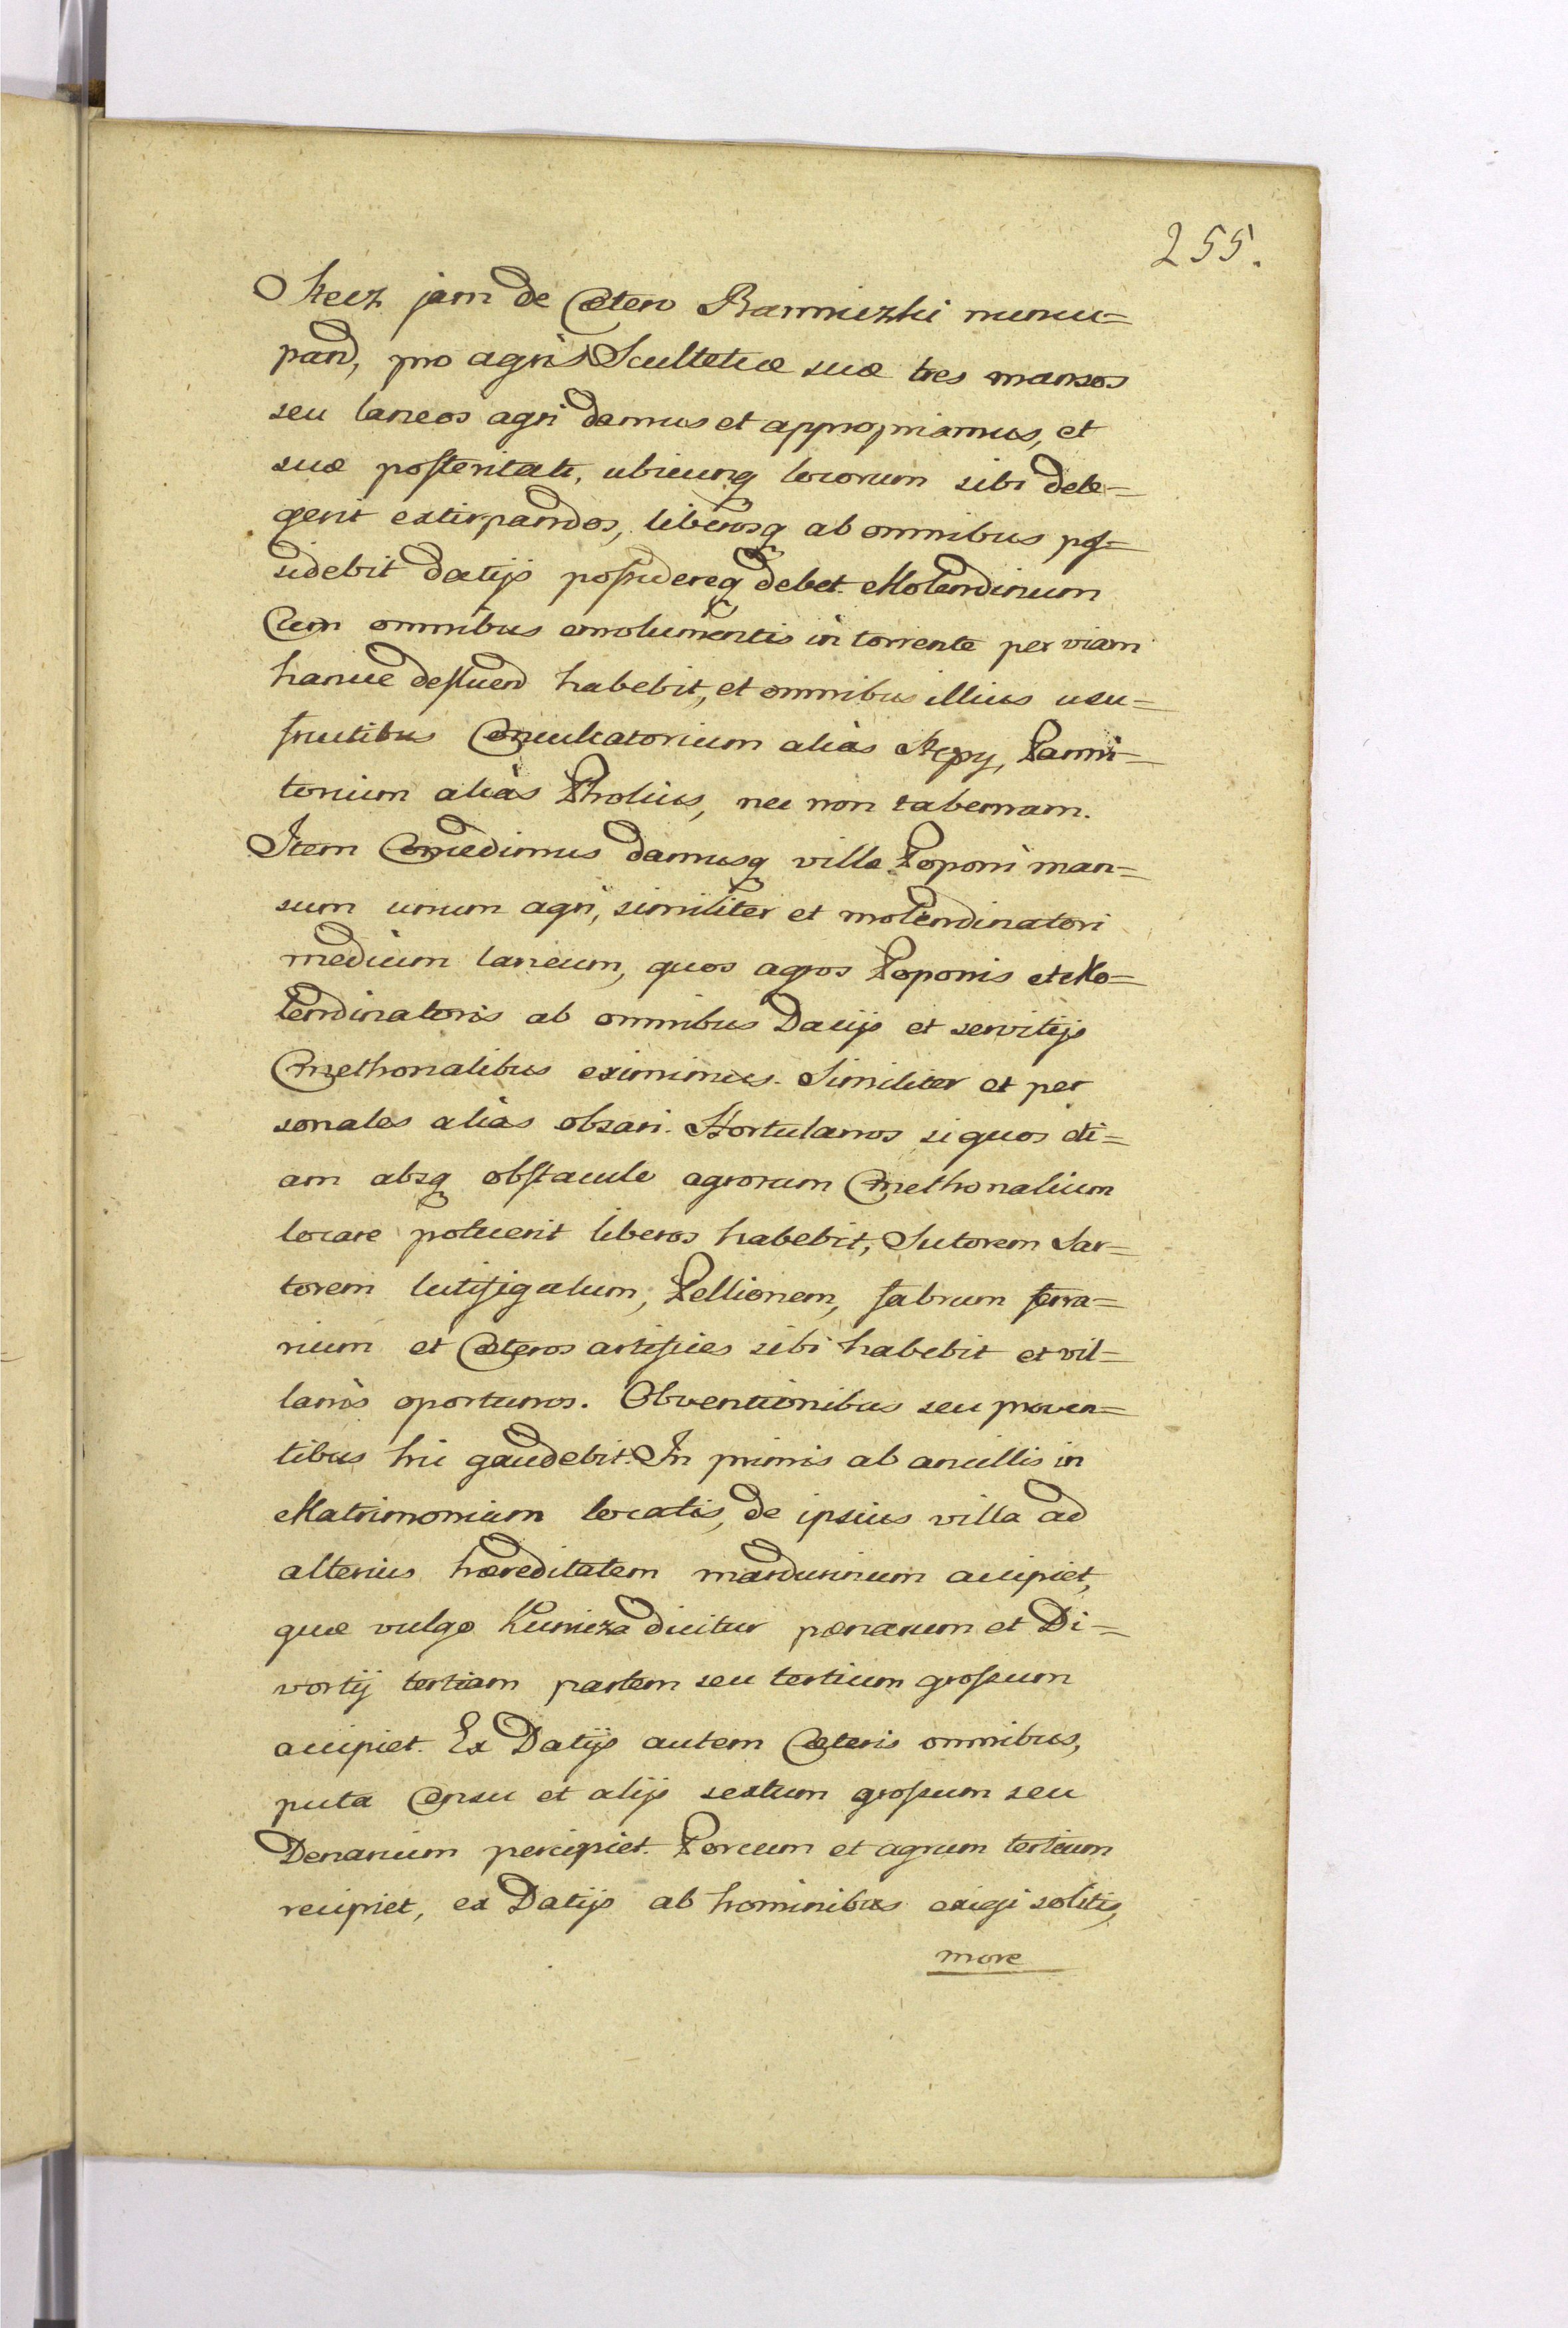 255.
Steez jam de Cætero Banniczki nuncu=
pand, pro agris Scultetiæ suæ tres mansos
seu laneos agri damus et appropriamus, et
suæ posteritati, ubicunq locorum sibi dele=
gerit extirpandos, liberosq ab omnibus pos=
sidebit datijs possidereq debet. Molendinum
Cum omnibus emolumentis in torrente per viam
hancce defluend habebit, et omnibus illius usu=
fructibus Conculcatorium alias Stępy, Panni=
torium aliàs Pholius, nec non tabernam.
Item Concedimus damusq villæ Poponi man=
sum unum agri, similiter et molendinatori
medium laneum, quos agros Poponis et Mo=
lendinatoris ab omnibus Dacijs et servitijs
Cmethonalibus eximimus. Similiter et per
sonales alias obsari. Hortulanos si quos eti=
am absq obstaculo agrorum Cmethonalium
locare potuerit liberos habebit, Sutorem Sar=
torem lutifigulum, Pellionem, fabrum ferra=
rium et Cæteros artifices sibi habebit et vil=
lanis oportunos. Obventionibus seu proven=
tibus hic gaudebit. In primis ab ancillis in
Matrimonium locatis, de ipsius villa ad
alterius hæreditatem mardurinum accipiet,
quæ vulgo Kunicza dicitur pœnarum et Di=
vortij tertiam partem seu tertium grossum
accipiet. Ex Datijs autem Cæteris omnibus,
puta Censu et alijs sextum grossum seu
Denarium percipiet. Porcum et agnum tertium
recipiet, ex Datijs ab hominibus exigi solitis,
more